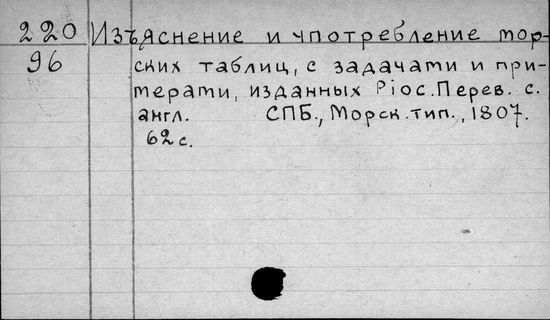 220 Изъяснение и употребление мор-
96 ских таблиц, с задачами и при-
мерами, изданных Рiос. Перев. с.
англ. СПБ., Морск. тип., 1807.
62 с.